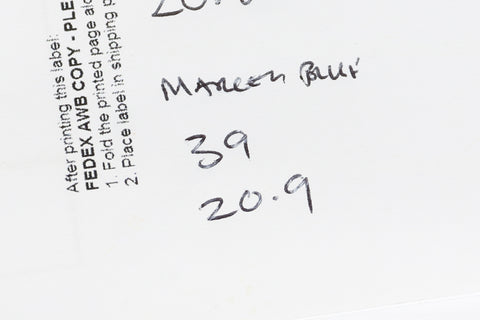 After printing this label:
FEDEX AWB COPY - PLE
1. Fold the printed page alo
2. Place label in shipping p
39
20.9